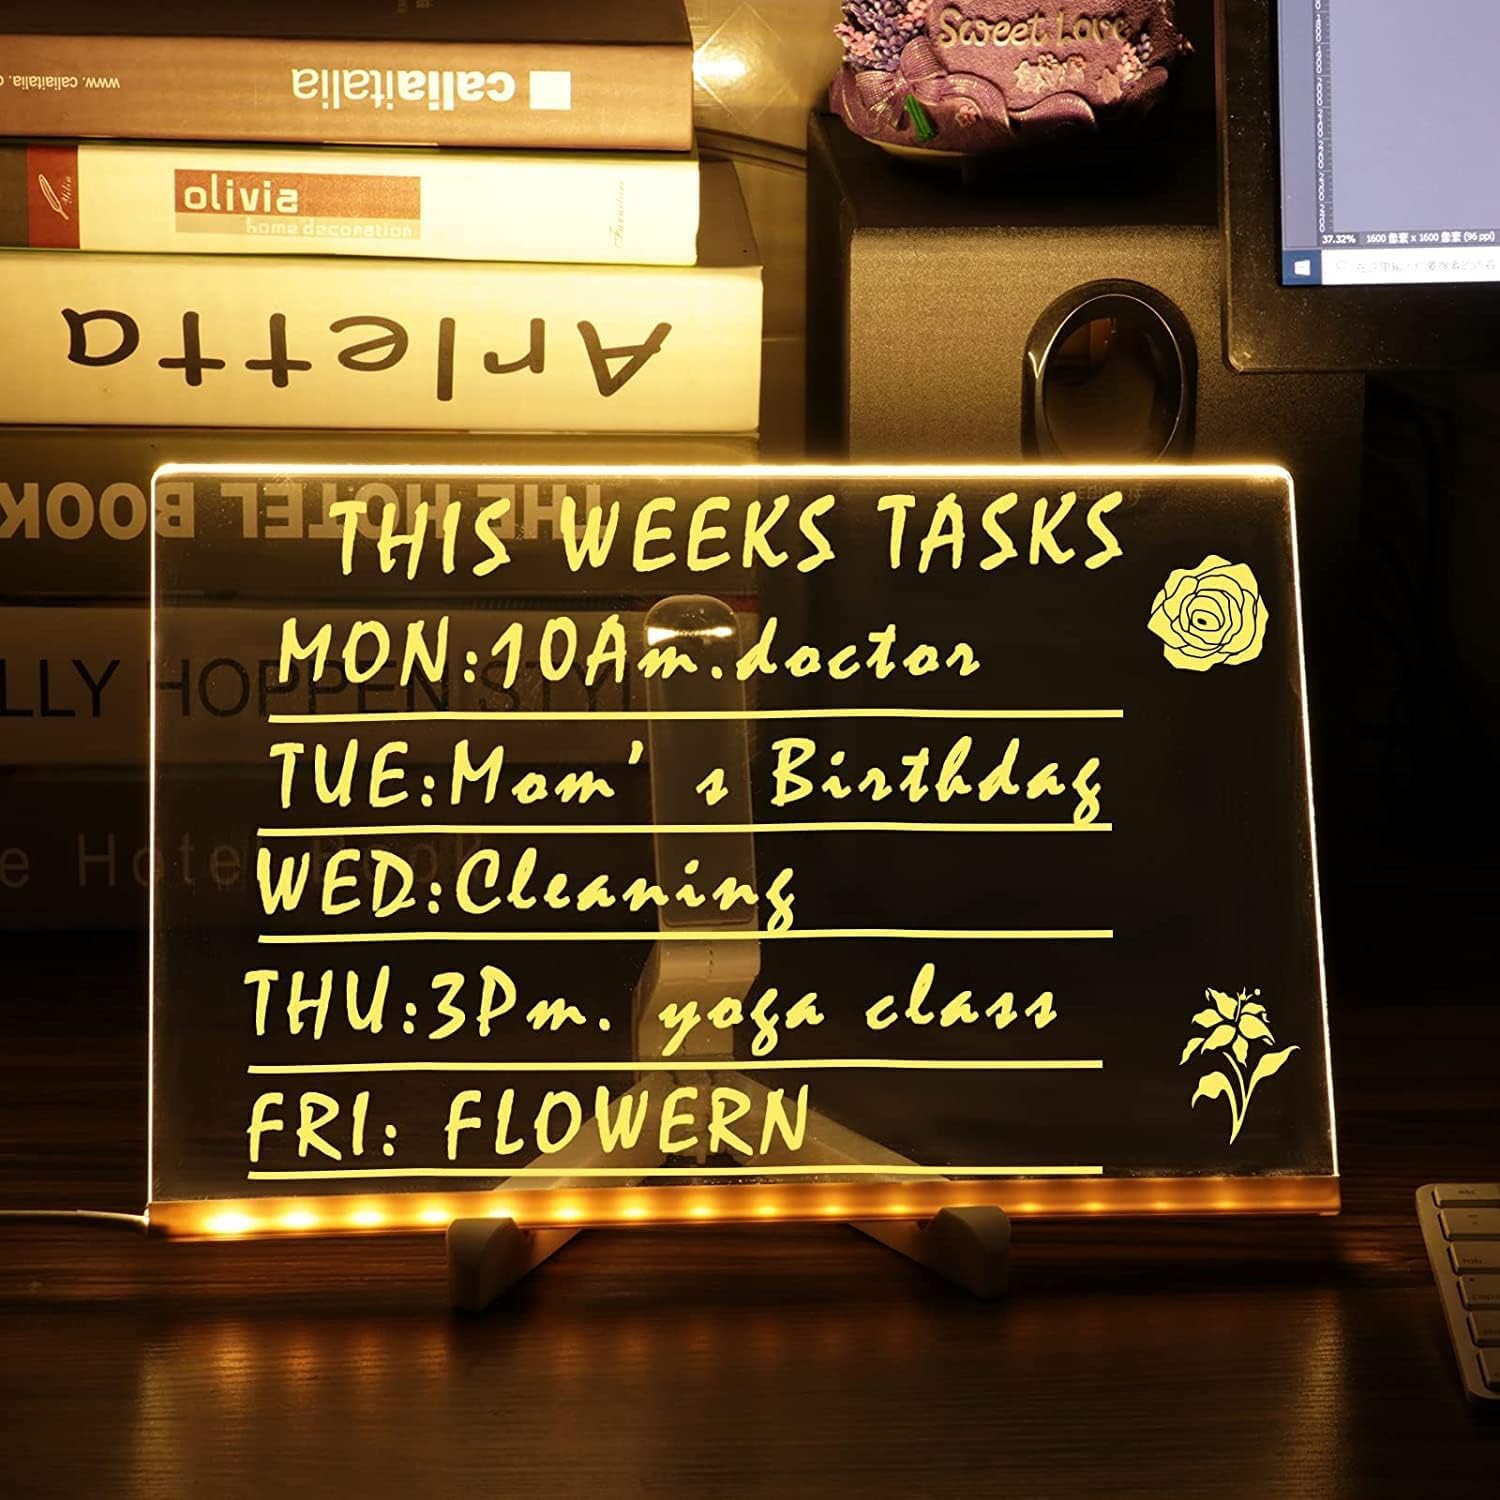 Sweet Love
caliaitalia
www.caliaitalia.
olivia
home decoration
Furniture
Arletta
37.32% 1600 像素 x 1600 像素 (96 ppi)
THE HOTEL BOOK
LLY HOPPEN STYL
e Hotel Book
THIS WEEKS TASKS
MON:10Am.doctor
TUE:Mom's Birthday
WED:Cleaning
THU:3Pm. yoga class
FRI: FLOWERN